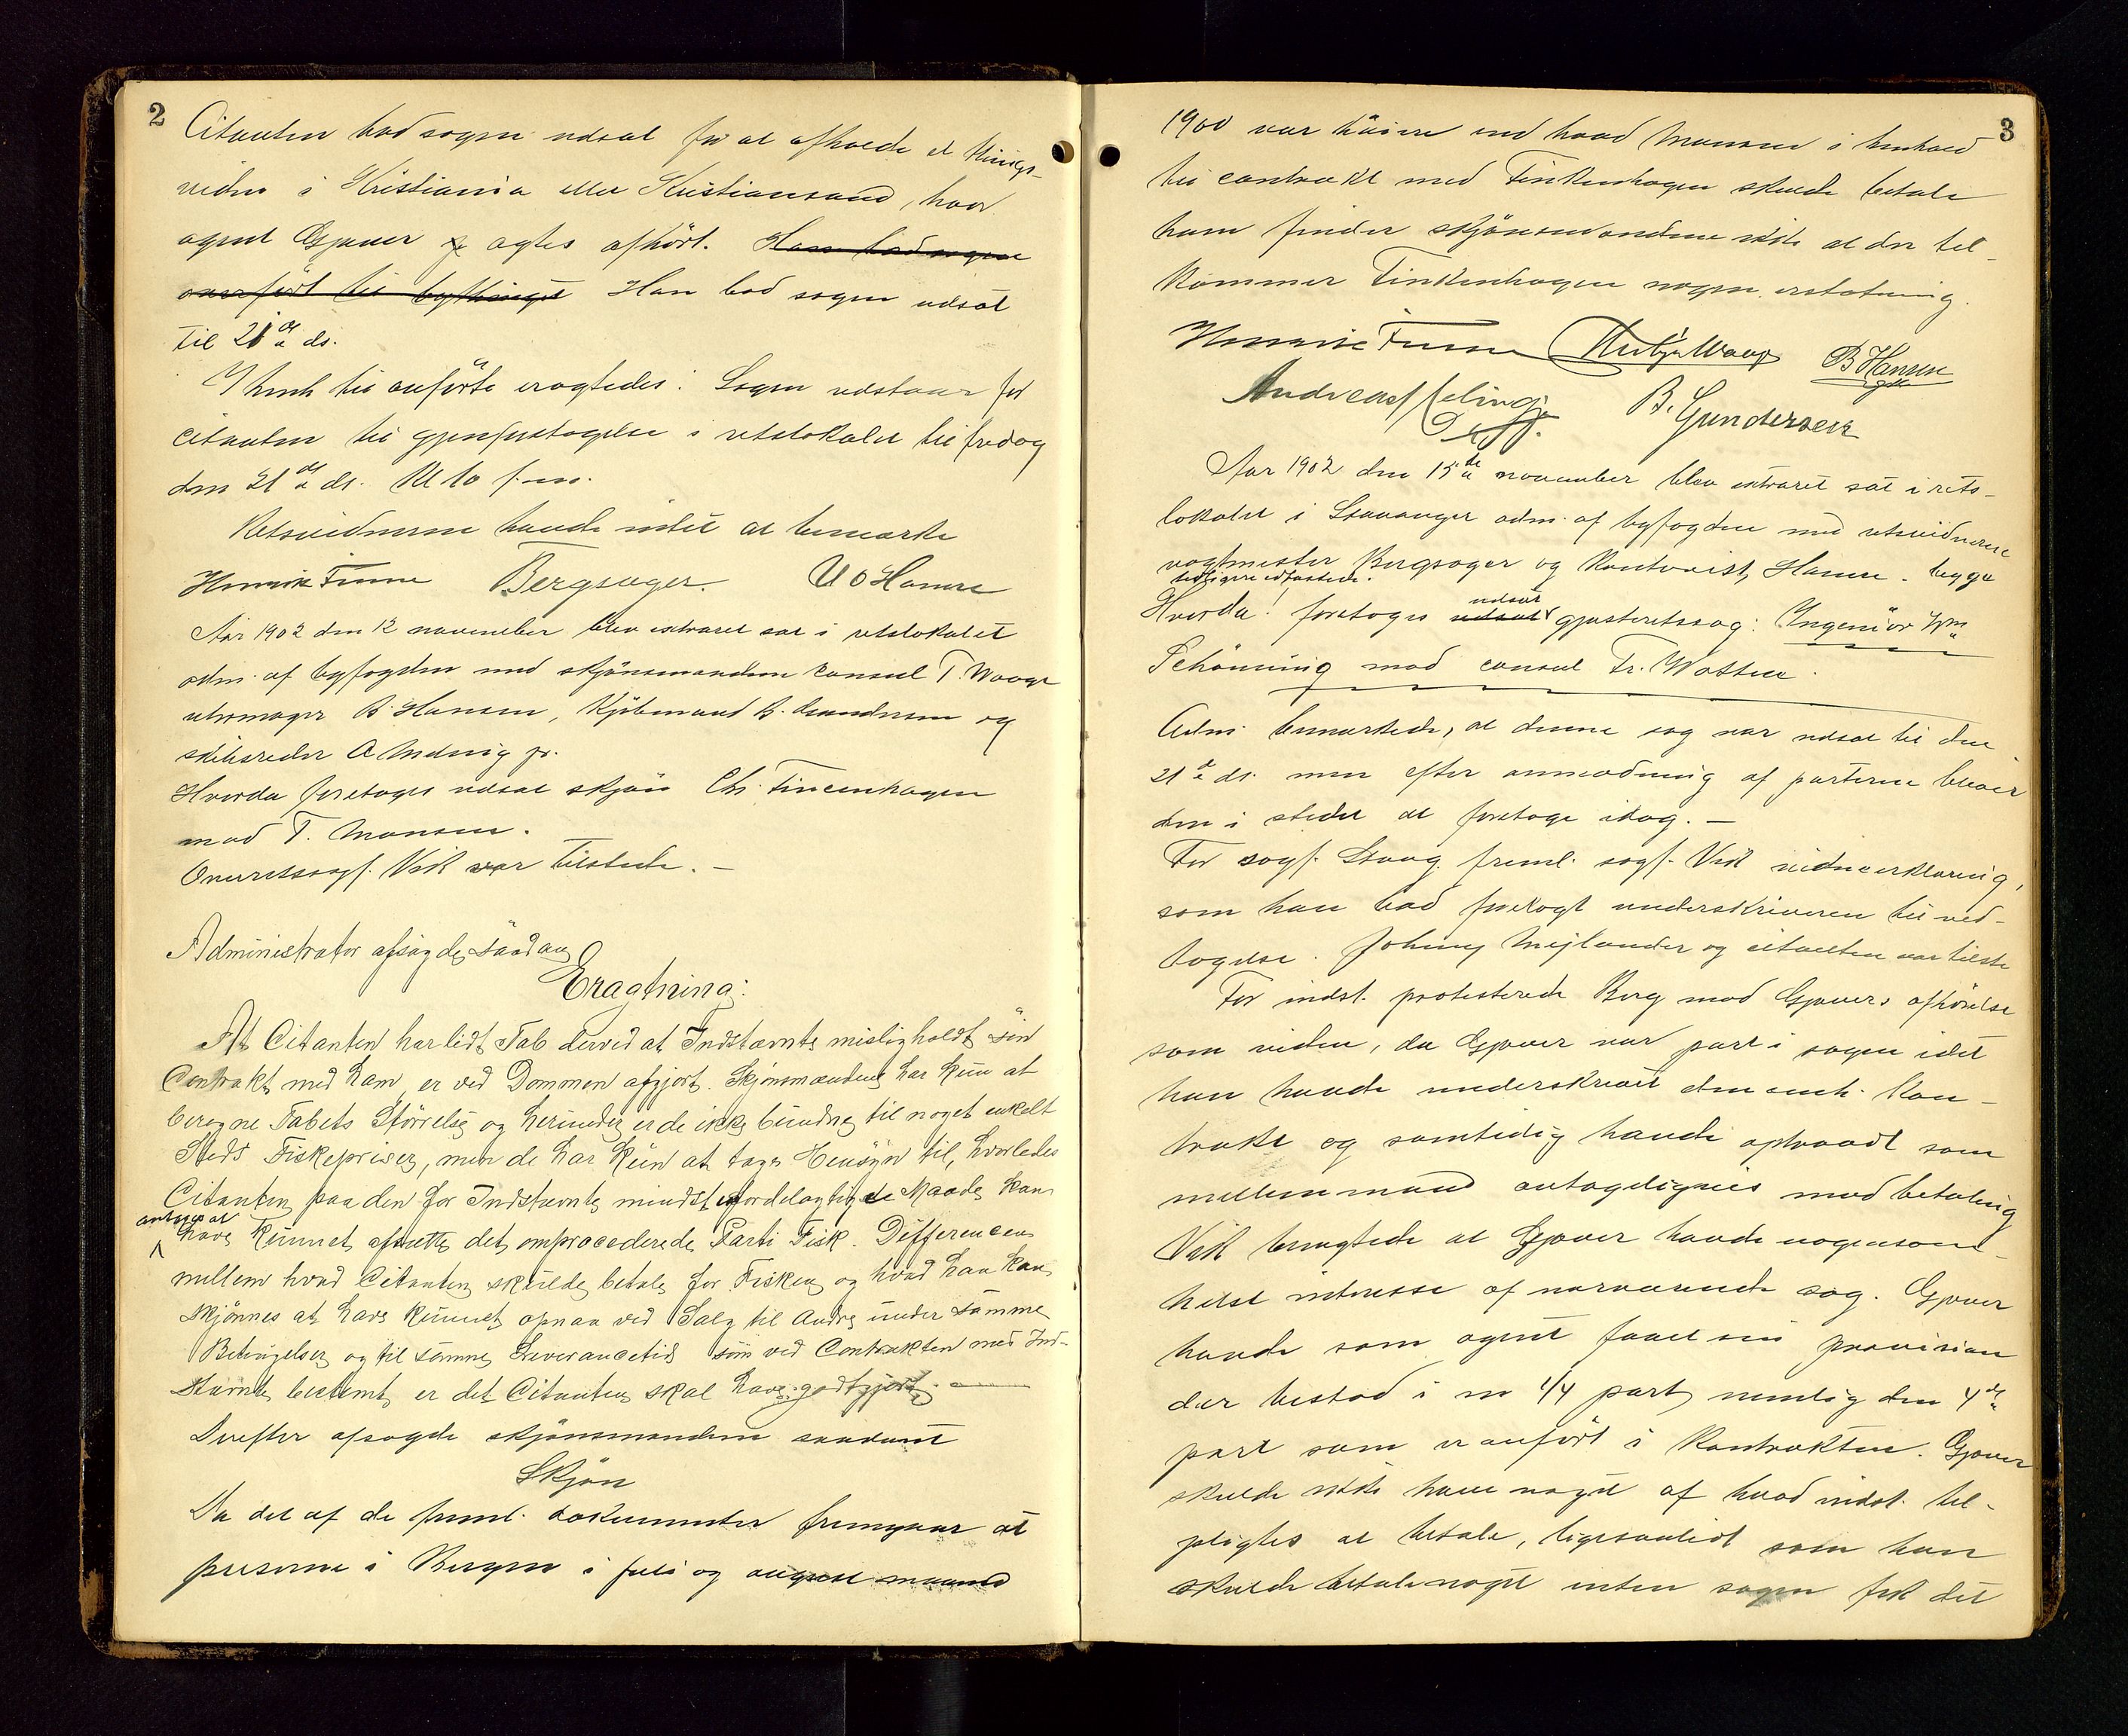 2
Citanten bad sagen udsat for at afholde et things-
vidne i Kristiania eller Kristiansand, hvor
agent Gjøver agtes afhørt. Han bad sagen
overført til bythinget Han bad sagen udsat
til 21de ds.
I henh til anførte eragtedes: Sagen udstaar for
citanten til gjenfortagelse i retslokalet til fredag
den 21de ds. Kl 10 f.m.
Retsvidnerne havde intet at bemærke
Henrik Finne Bergsager. U O Hamre
Aar 1902 den 12 november blev extraret sat i retslokalet
adm. af byfogden med skjønsmændene consul T. Waage
uhrmager B. Hansen, Kjøbmand B. Gundersen og
skibsreder A jr.
Hvorda foretoges udsat skjøn Chr. Finkenhagen
mod T. Monsen.
Overretssagf. Vik var tilstede. –
Administrator afsagde saadan
Eragtning:
At Citanten har lidt Tab derved at Indstævnte misligholdt sin
Contrakt med ham, er ved Dommen afgjort. Skjønsmændene har kun at
beregne Tabets Størrelse og herunder er de ikke bundne til noget enkelt
Steds Fiskepriser, men de har kun at tage Hensyn til, hvorledes
Citanten paa den for Indstævnte mindst ufordelagtigste Maade kan
antages at
have kunnet afsætte det omprocederede Parti Fisk. Differencen
mellem hvad Citanten skulde betale for Fisken og hvad han kan
skjønnes at have kunnet opnaa ved Salg til Andre under samme
Betingelser og til samme Leverancetid som ved Contrakten med Ind-
stævnte bestemt, er det Citanten skal have godtgjort. —
Derefter afsagde skjønsmændene saadant
Skjøn
Da det af de freml. dokumenter fremgaar at
priserne i Bergen i juli og august maaned
3
1900 var høiere end hvad Monsen i henhold
til contrakt med Finkenhagen skulde betale
ham finder skjønsmændene ikke at der til-
kommer Finkenhagen nogen erstatning.
Henrik Finne Waage B Hansen
Andreas B. Gundersen
Aar 1902 den 15de november blev extraret sat i rets-
lokalet i Stavanger adm. af byfogden med retsvidnerne
vagtmester Bergsager og Kontorist Hamre. begge
tidligere edfæstede.
udsat
Hvorda! foretoges udsat gjesteretssag: Ingeniør Wm
Schönning mod consul Fr. Watten.
Adm. bemærkede, at denne sag var udsat til den
21de ds. men efter anmodning af parterne bliver
den i stedet at foretage idag. –
For sagf. Staag freml. sagf. Vik vidneerklæring,
som han bad forelagt underskriveren til ved-
tagelse. Johnny Mejlænder og citanten var tilste
For indst. protesterede Berg mod Gjøvers afhørelse
som vidne, da Gjøver var part i sagen idet
han havde underskrevet den omh. kon-
trakt og samtidig havde optraadt som
mellemmand antageligvis mod betaling
Vik benegtede at Gjøver havde nogensom-
helst interesse af nærværende sag. Gjøver
havde som agent faaet sin provision
der bestod i en 1/4 part, nemlig den 4de
part som er anført i Kontrakten. Gjøver
skulde ikke have noget af hvad indst. til-
pligtes at betale, ligesaalidt som han
skulde betale noget enten sagen fik det